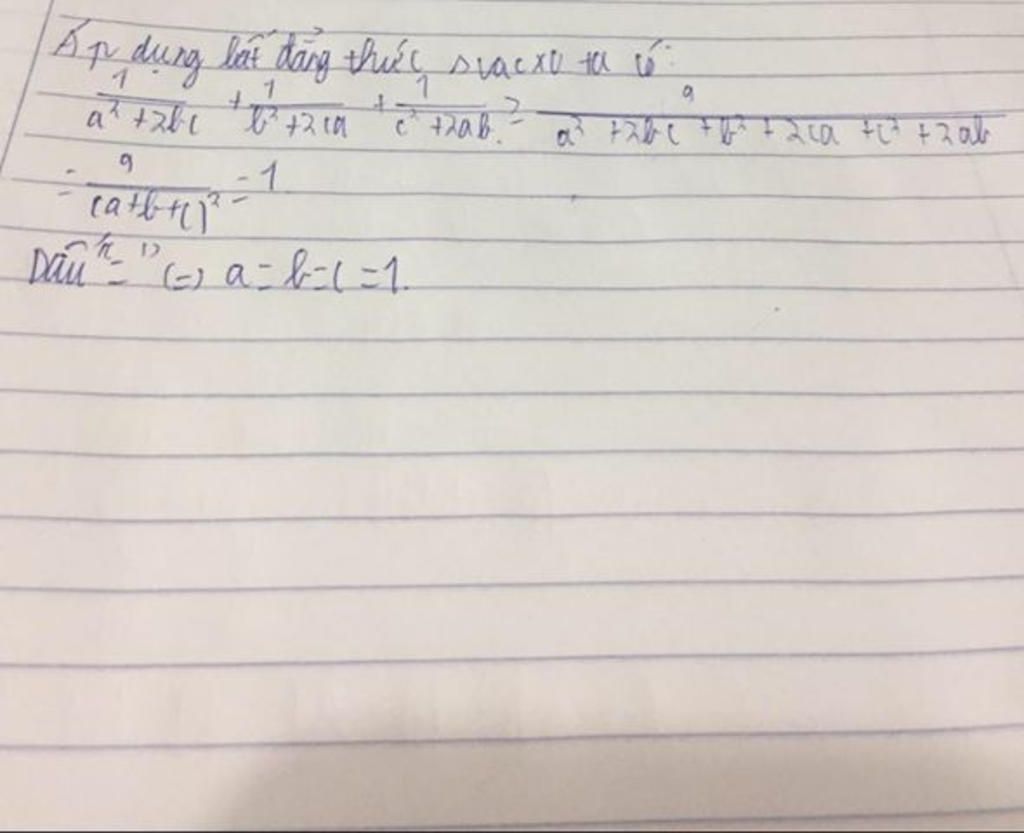 Áp dụng bất đẳng thức svacxơ ta có:
1/(a² + 2bc) + 1/(b² + 2ca) + 1/(c² + 2ab) ≥ 9/(a² + 2bc + b² + 2ca + c² + 2ab)
= 9/(a+b+c)² = 1
Dấu "=" (=) a = b = c = 1.